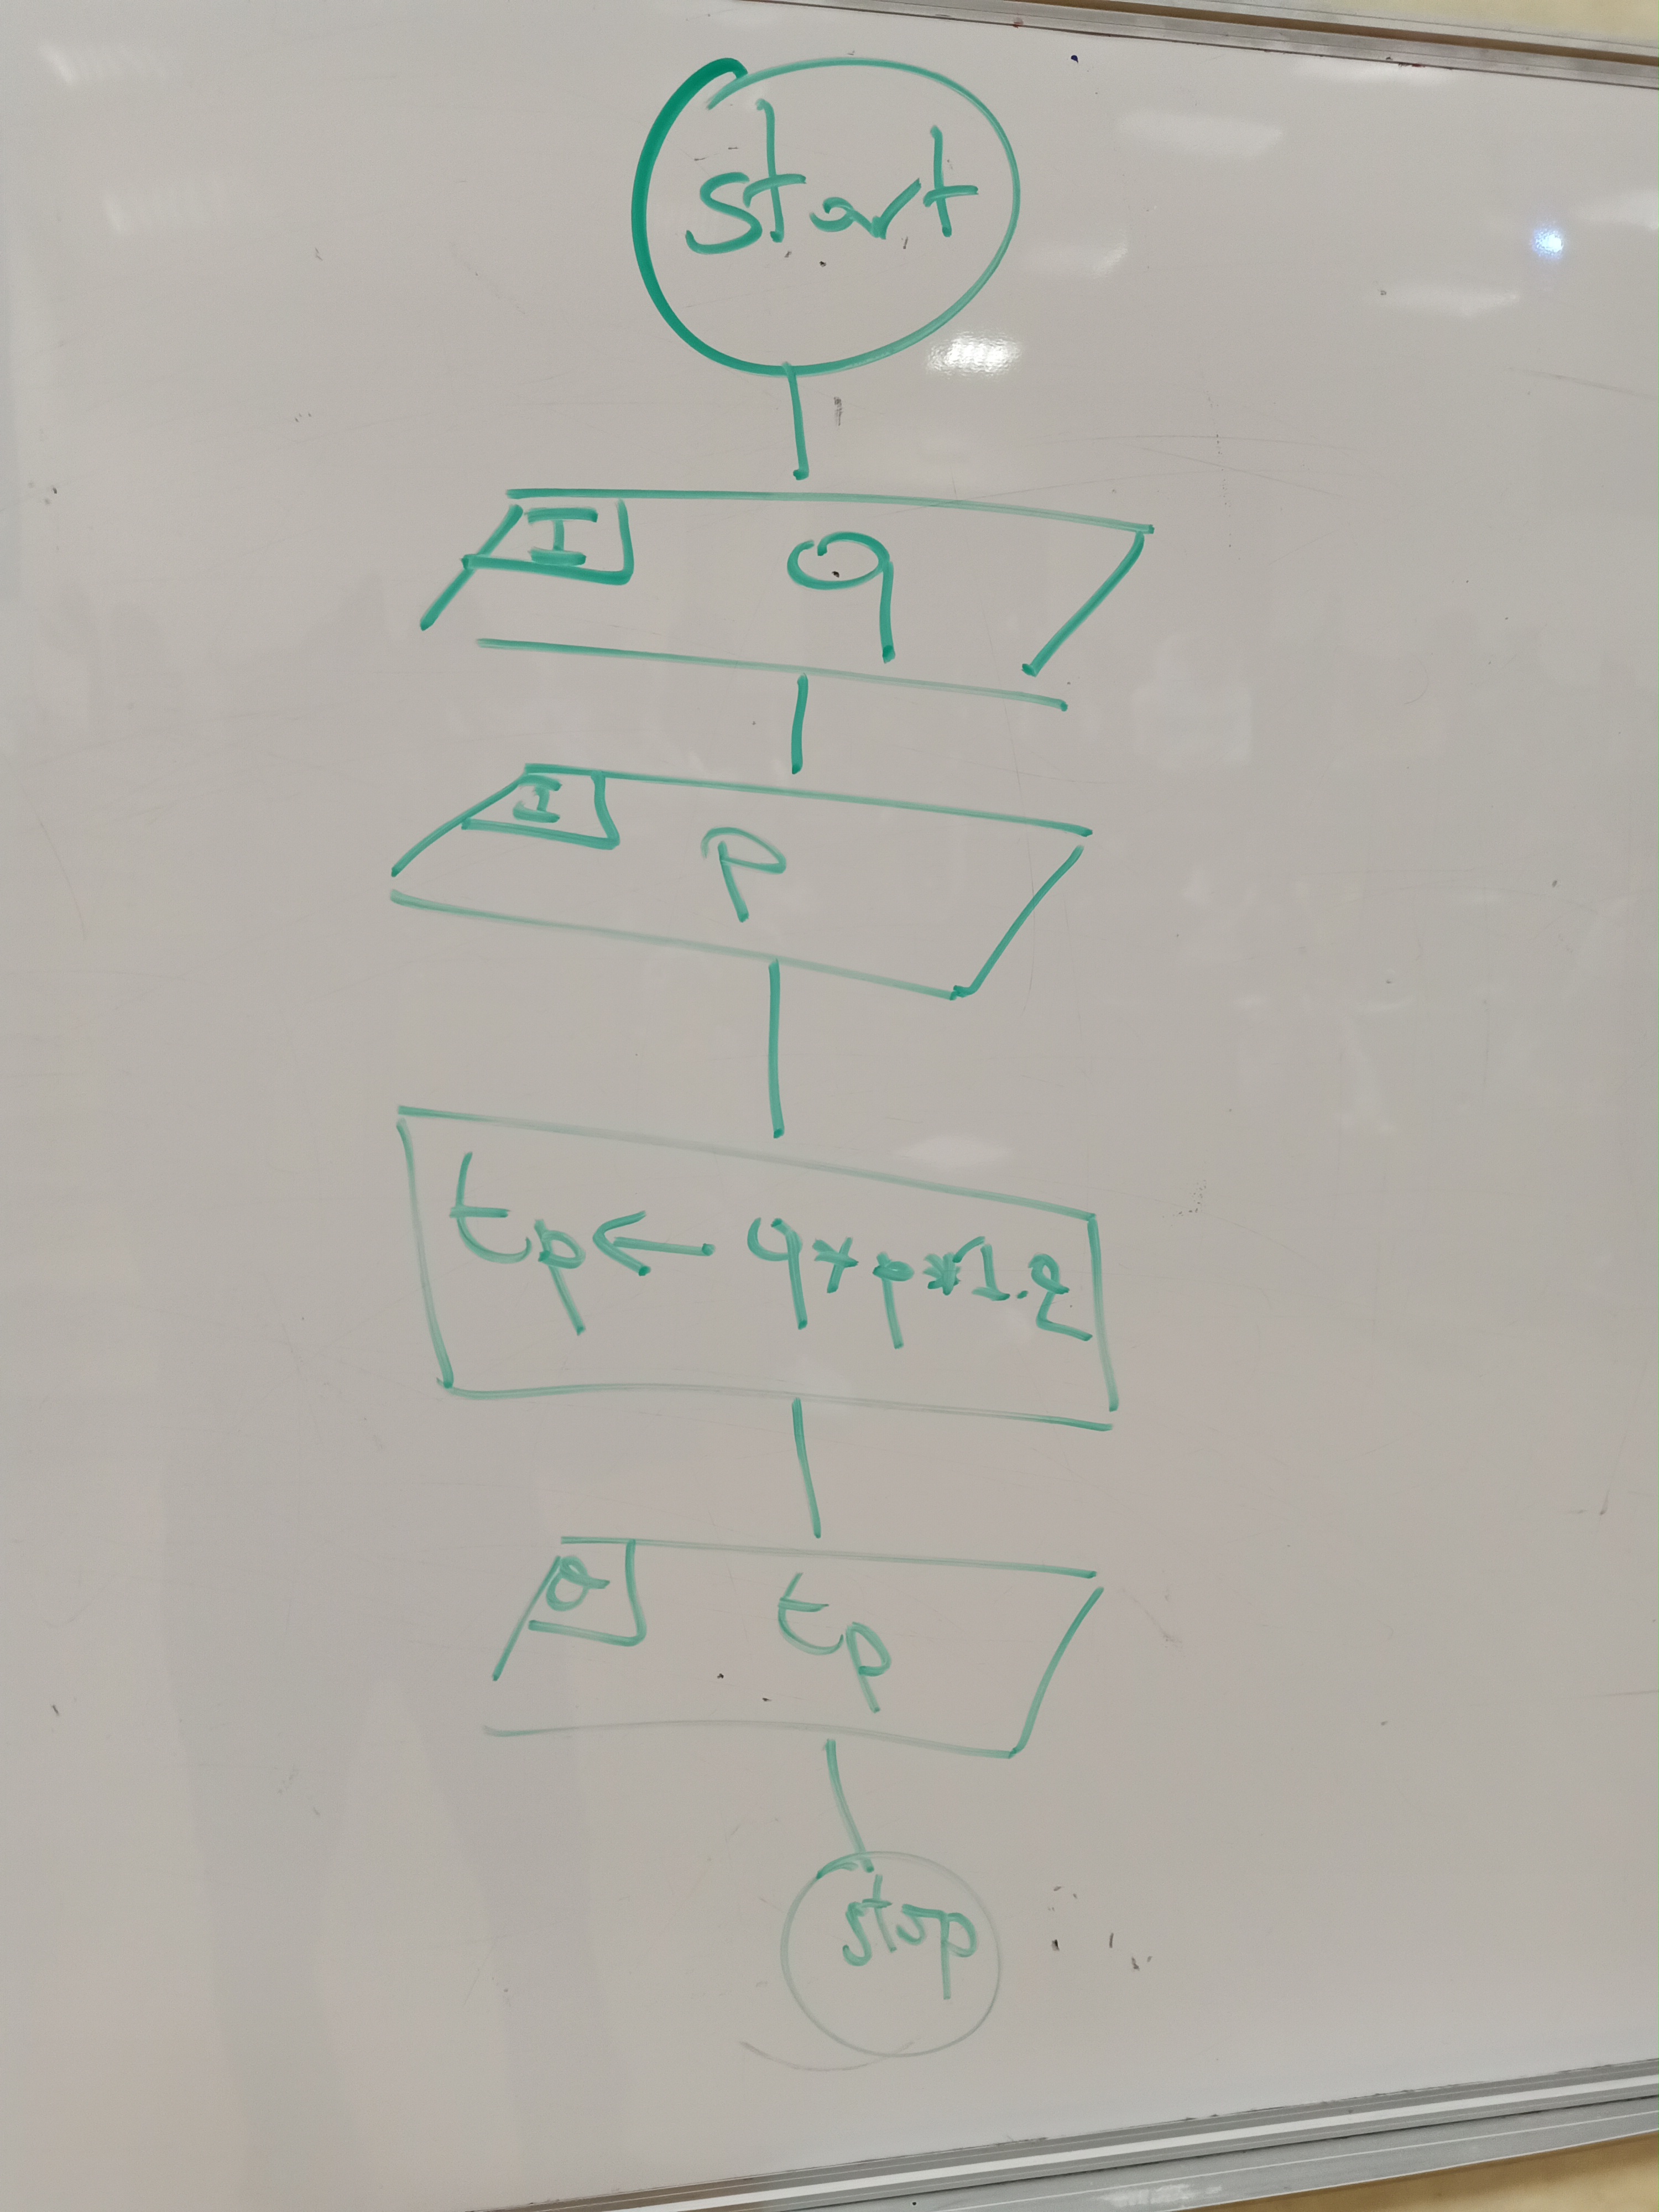 start
I q
I p
tp ← q*p*1.2
O tp
stop